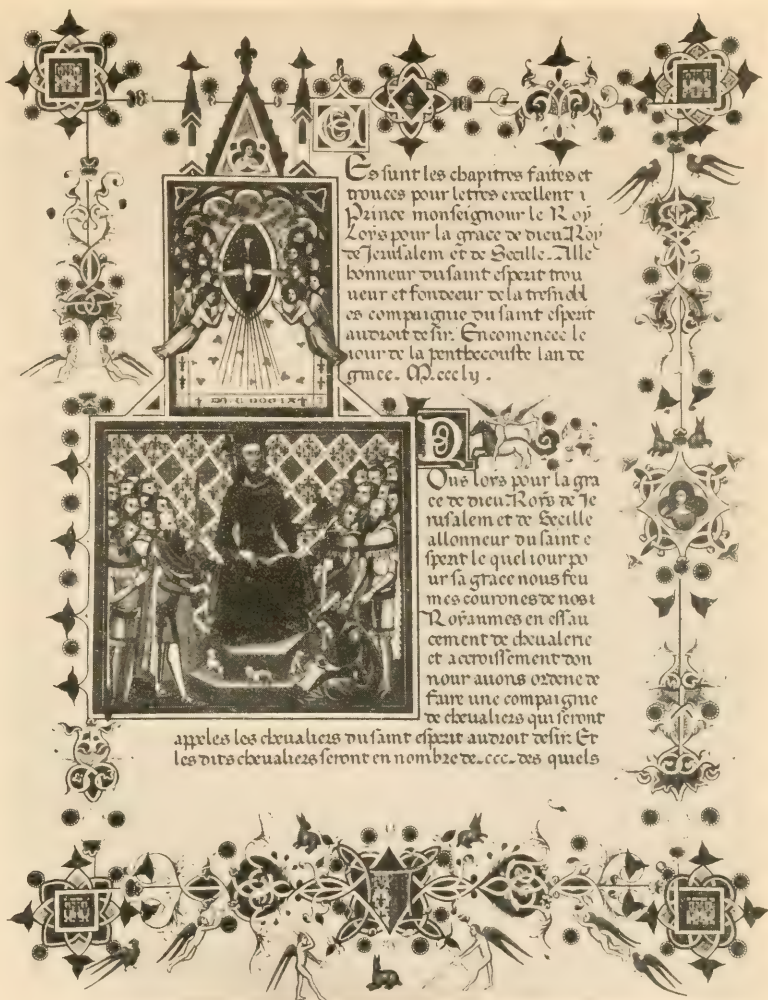 Es sunt les chapitres faites et
trouees pour letres excellent i
Prince monseignour le Roy
Loys pour la grace de dieu Roy
de Jerusalem et de Secille. Alle
honneur du saint esperit trou
ueur et fondeeur de la tresnobl
es compaignie du saint esperit
au droit desir. Encomencee le
iour de la penthecouste lan de
grace. M.ccclij.
D
Ous loys pour la gra
ce de dieu Roys de Je
rusalem et de Secille
allonneur du saint e
sperit le quel iour po
ur sa grace nous feu
mes courones de nos
Royaumes en essau
cement de cheualerie
et accroissement don
nour auons ordene de
faire une compaignie
de cheualiers qui seront
appeles les cheualiers du saint esperit au droit desir. Et
les dits cheualiers seront en nombre de .ccc. des quiels